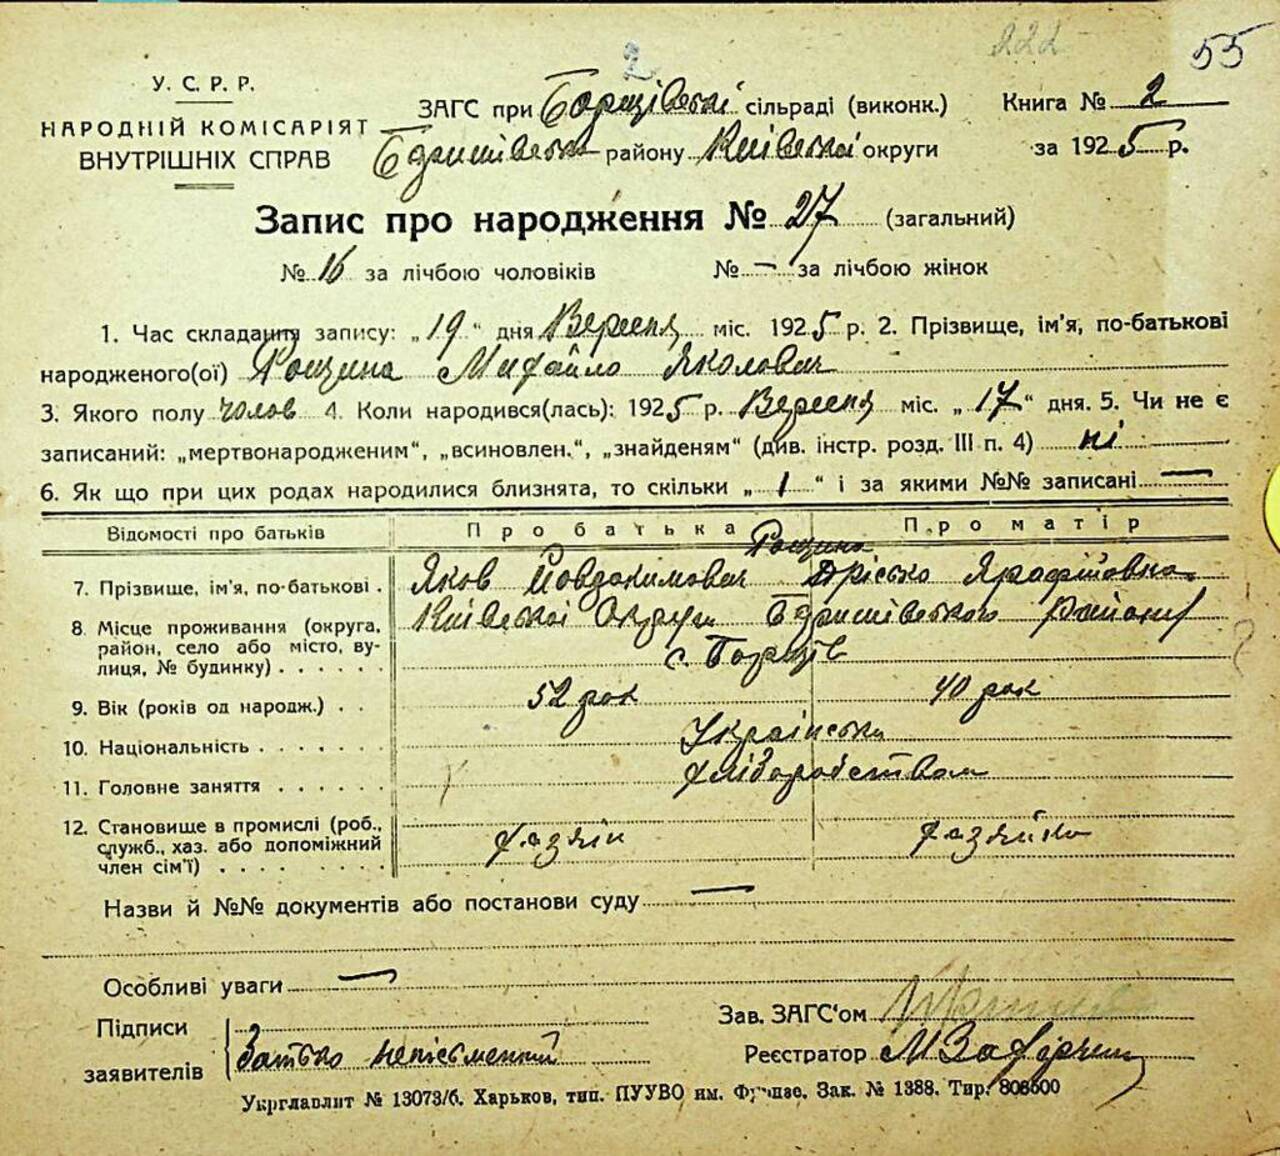 222 55
2
У. С. Р. Р.
НАРОДНІЙ КОМІСАРІЯТ
ВНУТРІШНІХ СПРАВ
ЗАГС при Борщівській сільраді (виконк.) Книга № 2
району Київської округи за 1925 р.
Запис про народження № 27 (загальний)
№ 16 за лічбою чоловіків № — за лічбою жінок
1. Час складання запису: „19“ дня Вересня міс. 1925 р. 2. Прізвище, ім’я, по-батькові
народженого(ої) Рощина Михайло Яковович
3. Якого полу чолов 4. Коли народився(лась): 1925 р. Вересня міс. „17“ дня. 5. Чи не є
записаний: „мертвонародженим“, „всиновлен.“, „знайденям“ (див. інстр. розд. III п. 4) ні
6. Як що при цих родах народилися близнята, то скільки „1“ і за якими №№ записані —
Відомості про батьків Про батька Про матір
Рощина
7. Прізвище, ім’я, по-батькові . Яков Йовдокимович
8. Місце проживання (округа, район, село або місто, вулиця, № будинку) . . . . . Київської Округи Району
с. Борщів
9. Вік (років од народж.) . . 52 рок 40 рок
10. Національність . . . . . . . Українська
11. Головне заняття . . . . . . Хліборобством
12. Становище в промислі (роб., служб., хаз. або допоміжний член сім’ї) . . . . . . . Хазяїн Хазяйка
Назви й №№ документів або постанови суду —
Особливі уваги —
Підписи
заявителів Батько неписьменний
Зав. ЗАГС‘ом
Реєстратор
Укрглавлит № 13073/б. Харьков, тип. ПУУВО им. Фрунзе. Зак. № 1388. Тир. 808500